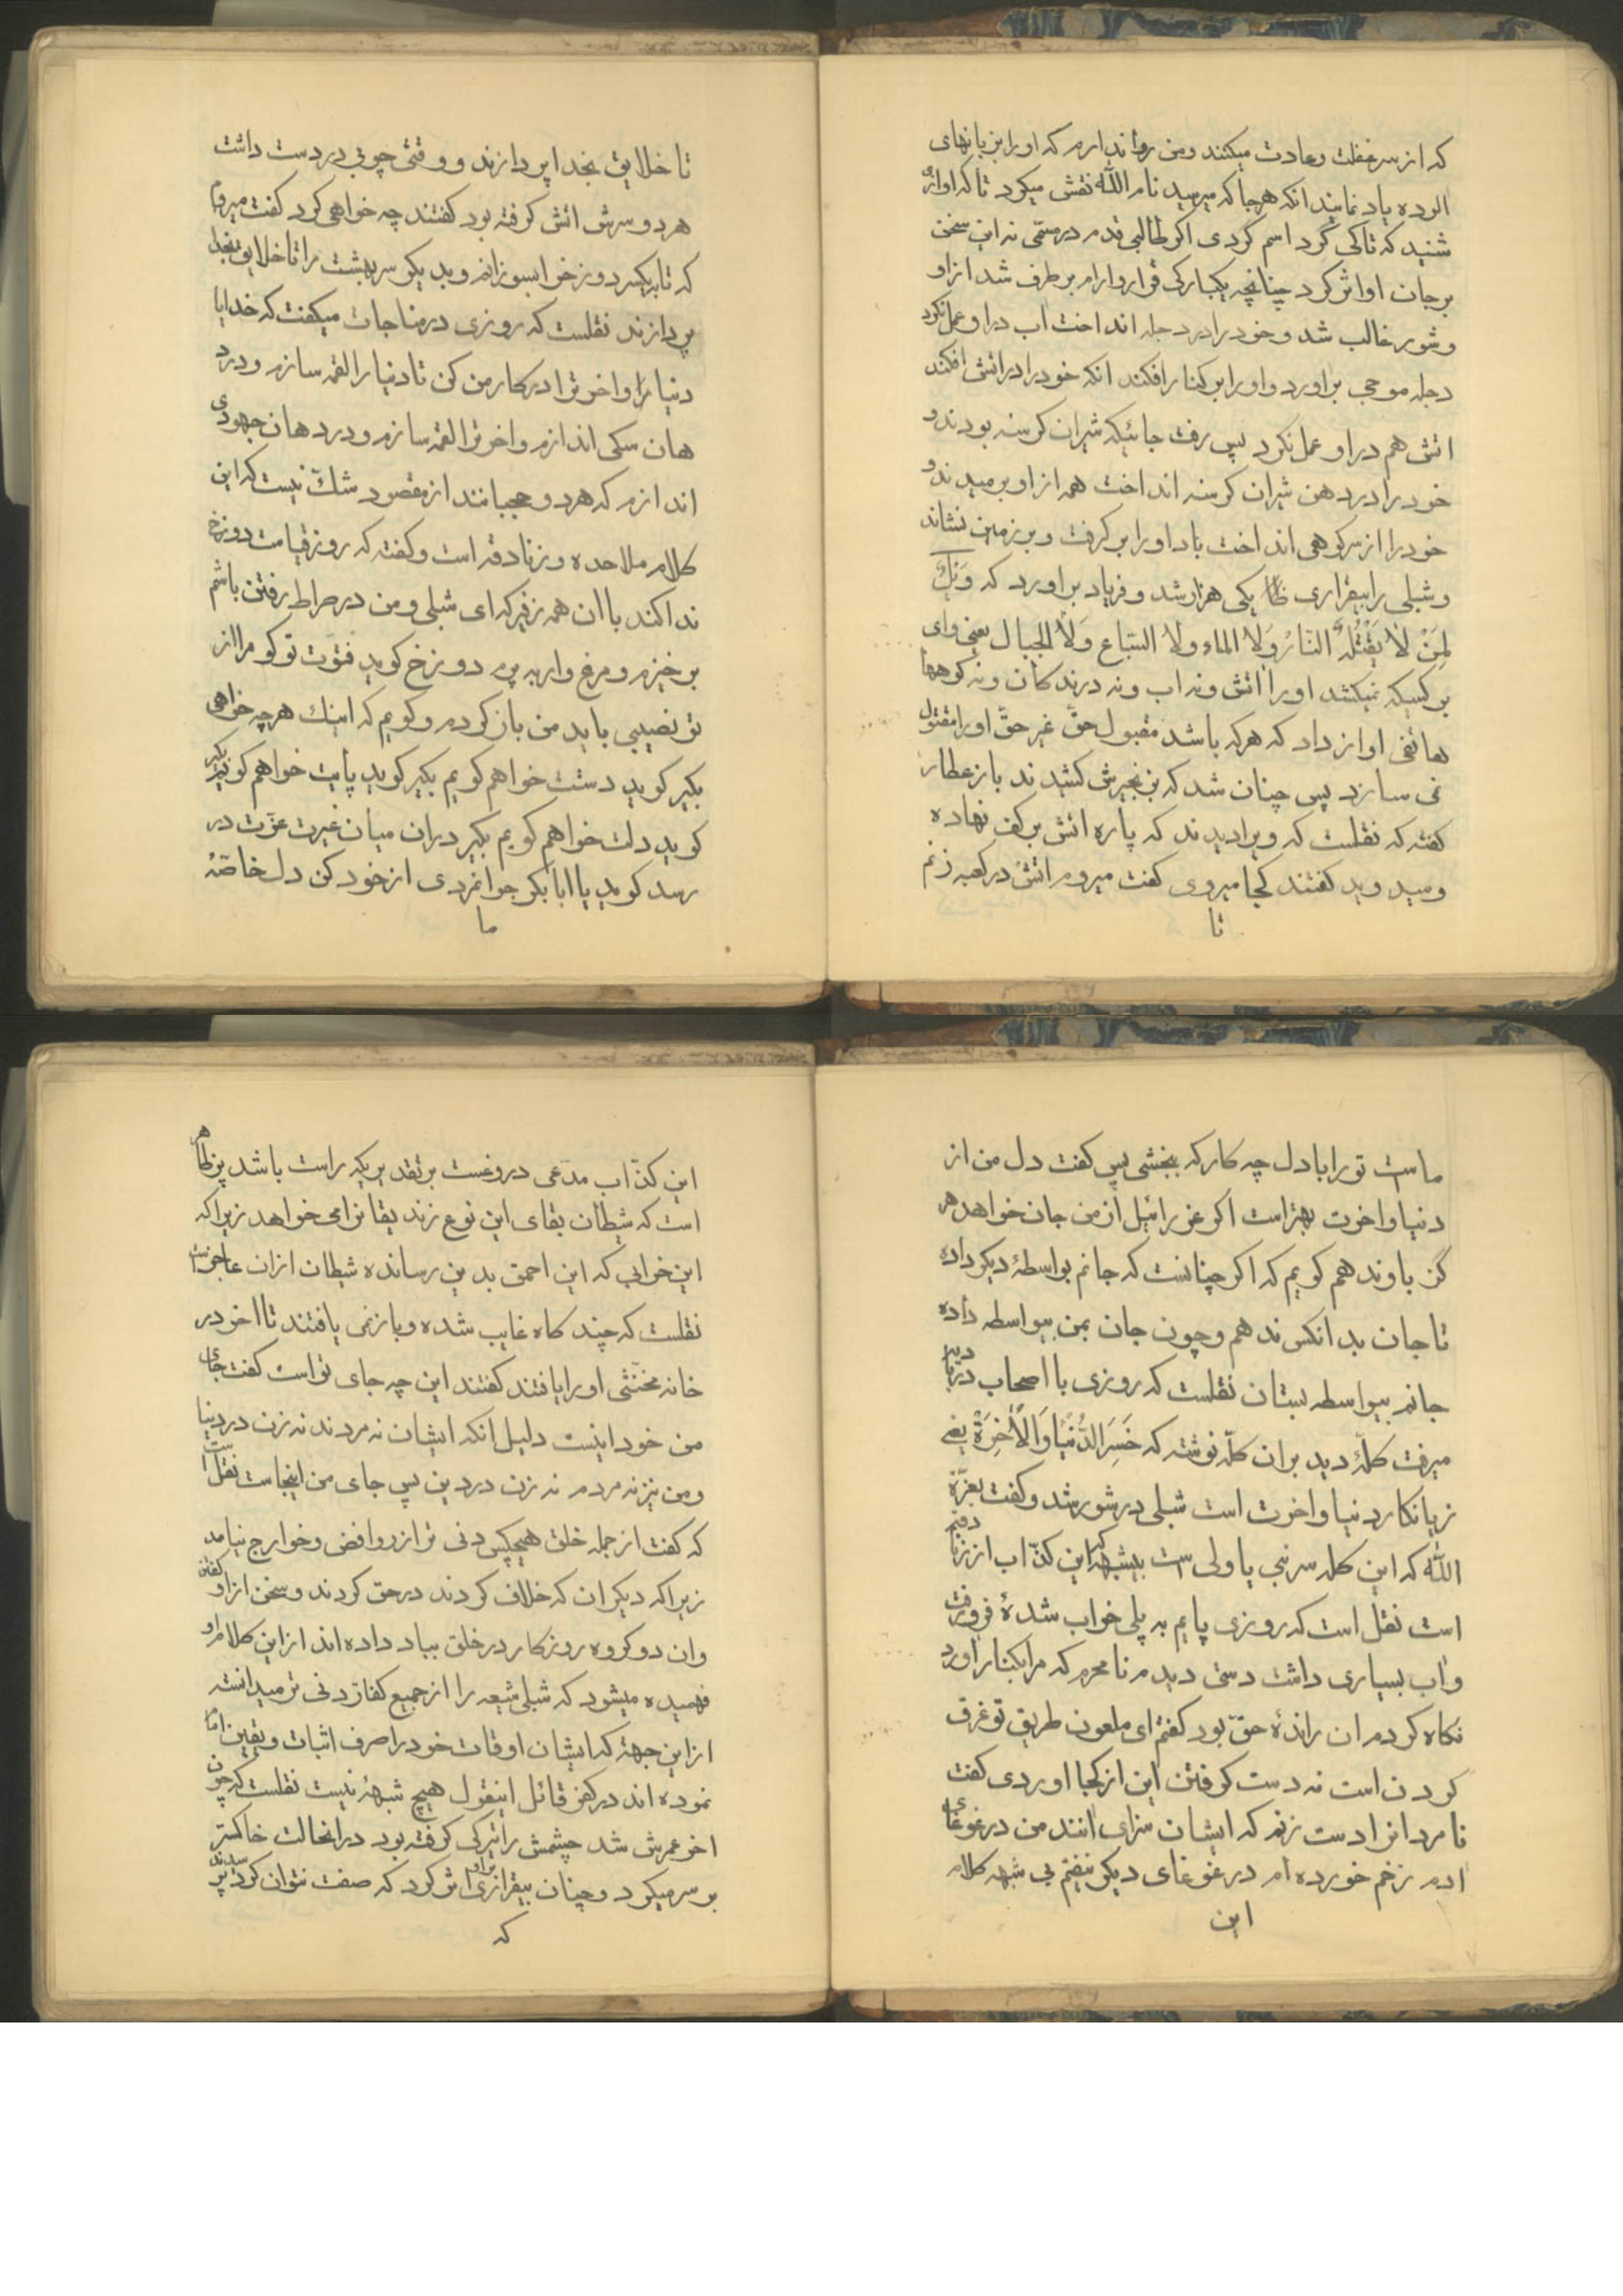 که از سر غفلت و عادت میکنند ومن روا ندارم که او را بزبانهای
الوده یاد نمایند انکه هرجا که میرسید نام الله نقش میکرد تا که اوازی
شنید که تا کی گرد اسم گردی اگر طالبی قدم در مسمّی نه این سخن
بر جان او اثر کرد چنانچه یکبارکی قرار وارام بر طرف شد از او
وشور غالب شد و خود را در دجله انداخت اب در او عمل نکرد
دجله موجی براورد و او را بر کنار افکند انکه خود را در اتش افکند
اتش هم در او عمل نکرد پس رفت جائیکه شیران کرسنه بودند و
خود را در دهن شیران کرسنه انداخت همه از او برمیدند و
خود را از سر کوهی انداخت باد او را بر کرفت و بر زمین نشاند
و شبلی را بیقراری یکی هزار شد و فریاد براورد که وَیلٌ
لِمَنْ لاٰ یَقْتُلُهُ النّارُ وَلاَ الماء ولاَ السّباع وَلاَ الجبال یعنی وای
بر کسیکه نمیکشد او را اتش ونه اب ونه درندکان ونه کوهها
هاتفی اواز داد که هرکه باشد مقبول حقّ غیر حقّ او را مقتول
نمی سازد پس چنان شد که بزنجیرش کشیدند باز عطار
کفته که نقلست که ویرا دیدند که پاره اتش بر کف نهاده
ومیدوید کفتند کجا میروی کفت میروم اتش در کعبه زنم
تا
تا خلایق بخدا پردازند و وقتی چوبی در دست داشت
هر دو سرش اتش کرفته بود کفتند چه خواهی کرد کفت میروم
که تا بیکسر دوزخ را بسوزانم و بدیکر سر بهشت را تا خلایق بخدا
پردازند نقلست که روزی در مناجات میکفت که خدایا
دنیا را و اخرت را در کار من کن تا دنیا را لقمه سازم ودر د
هان سکی اندازم واخرت را لقمه سازم ودر دهان جهودی
اندازم که هر دو حجبانند از مقصود شکّ نیست که این
کلام ملاحده و زنادقه است وکفته که روز قیامت دوزخ
ندا کند با ان همه زفیر که ای شبلی ومن در صراط رفتن باشم
برخیزم و مرغ وار بپرم دوزخ کوید قوّت تو کو مرا از
تو نصیبی باید من باز کردم و کویم که اینك هرچه خواهی
بکیر کوید دستت خواهم کویم بکیر کوید پایت خواهم کویم بکیر
کوید دلت خواهم کویم بکیر دران میان غیرت عزّت در
رسد کوید یا ابابکر جوانمردی از خود کن دل خاصّهٔ
ما
ماست تو را با دل چه کار که ببخشی پس کفت دل من از
دنیا واخرت بهتر است اکر عزرائیل از من جان خواهد هر
گز باو ندهم کویم که اکر چنانست که جانم بواسطهٔ دیکر داده
تا جان بدانکس ندهم و چون جان بمن بیواسطه داده
جانم بیواسطه بستان نقلست که روزی با اصحاب در بادیه
میرفت کلّهٔ دید بران کلّه نوشته که خَسِرَ الدُّنْیٰا وَالْاٰخِرَةَ یعنی
زیانکار دنیا واخرت است شبلی در شور شد و کفت بعزّة
الله که این کله سر نبی یا ولی ست بیشبهه که این کذّاب از زنادقه
است نقل است که روزی پایم به پلی خراب شدهٔ فرو رفت
واب بسیاری داشت دستی دیدم نامحرم که مرا بکنار اورد
نکاه کردم ان راندهٔ حقّ بود کفتم ای ملعون طریق تو غرق
کردن است نه دست کرفتن این از کجا اوردی کفت
نامردانرا دست زنم که ایشان سزای انند من در غوغای
ادم زخم خورده ام در غوغای دیکر نیفتم بی شبهه کلام
این
این کذّاب مدّعی دروغست بر تقدیریکه راست باشد پر ظاهر
است که شیطان بقای این نوع زندیقانرا می خواهد زیرا که
این خرابی که این احمق بدین رسانده شیطان ازان عاجز است
نقلست که چند کاه غایب شده و باز نمی یافتند تا اخر در
خانه مخنّثی او را یافتند کفتند این چه جای تو است کفت جای
من خود اینست دلیل انکه ایشان نه مردند نه زن در دنیا
ومن نیز نه مردم نه زن در دین پس جای من اینجاست نقل است
که کفت از جمله خلق هیچکس دنی تر از روافض و خوارج نیامد
زیرا که دیکران که خلاف کردند در حق کردند و سخن از او کفتند
وان دو کروه روزکار در خلق بباد داده اند از این کلام او
فهمیده میشود که شبلی شیعه را از جمیع کفار دنی تر میدانسته
از این جهة که ایشان اوقات خود را صرف اثبات و یقین امام
نموده اند در کفر قائل اینقول هیچ شبههٔ نیست نقلست که چون
اخر عمرش شد چشمش را تیرکی کرفته بود درانحالت خاکستر
بر سر میکرد و چنان بیقراری بر او اثر کرد که صفت نتوان کرد پرسیدند
که